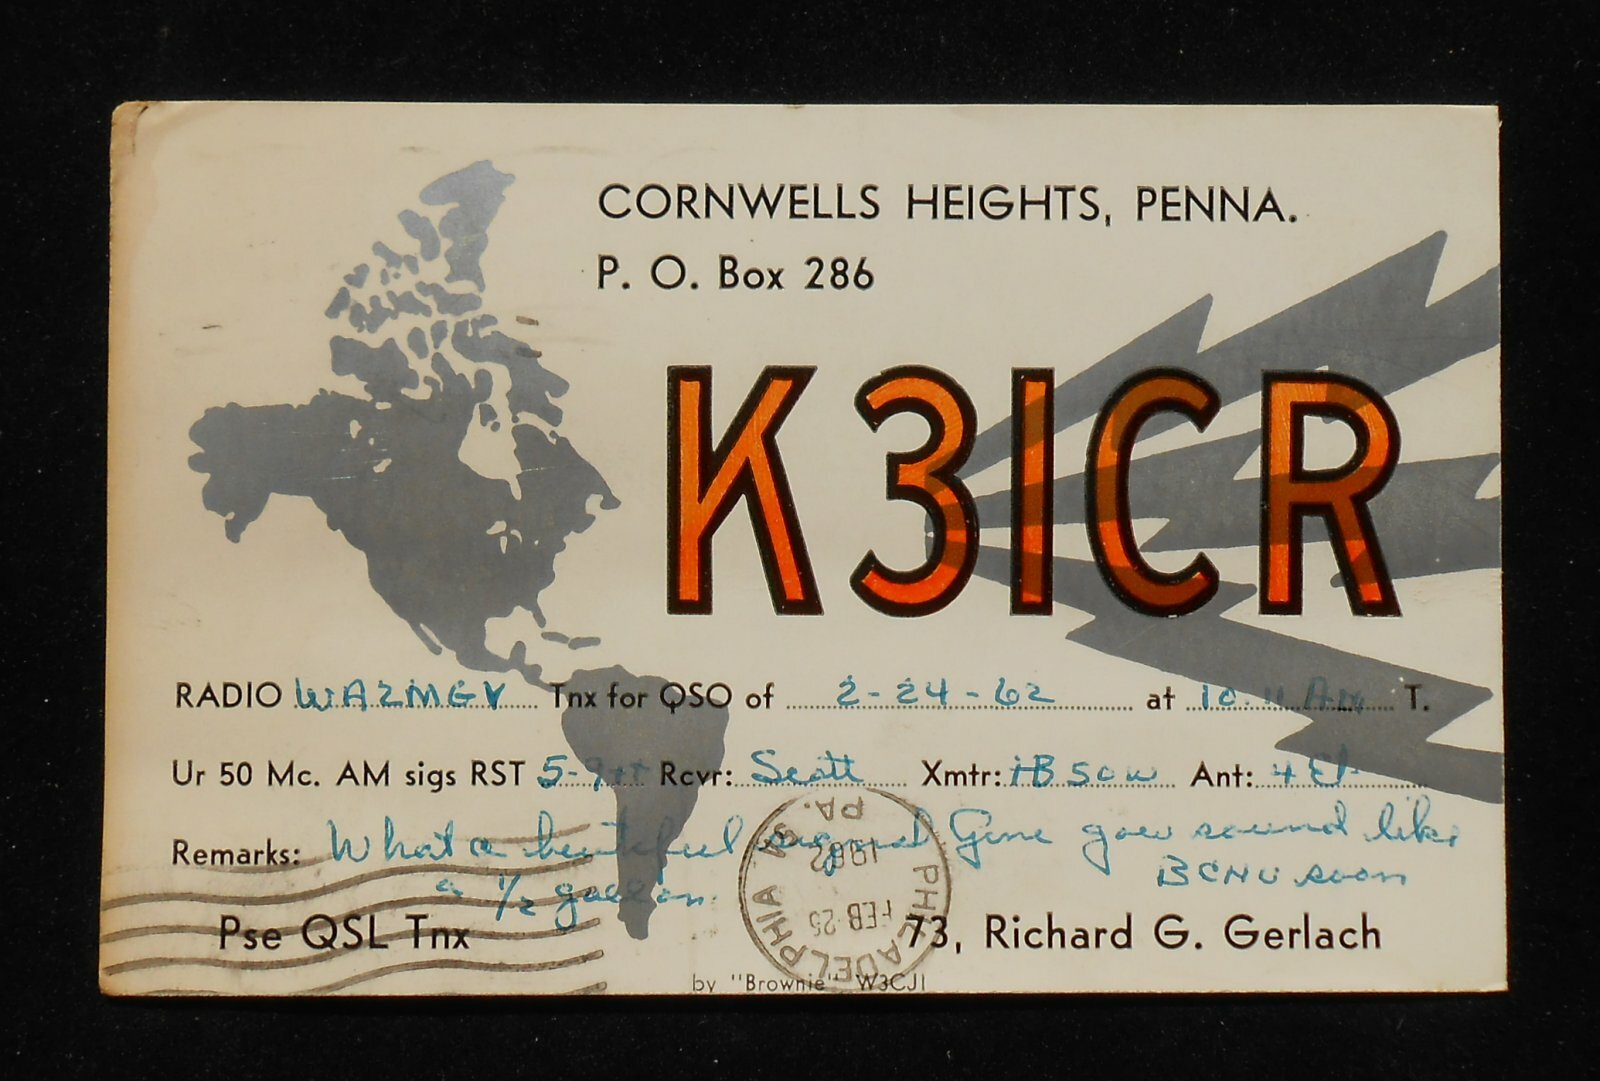 CORNWELLS HEIGHTS, PENNA.
P. O. Box 286
K3ICR
RADIO WA2MGV Tnx for QSO of 2-24-62 at 10.11 AM T.
Ur 50 Mc. AM sigs RST 5-9++ Rcvr: Scott Xmtr: HB 50W Ant: 4 El
Remarks: What a beutiful signal Gene you sound like
a 1/2 gallon. BCNU soon
Pse QSL Tnx 73, Richard G. Gerlach
PHILADELPHIA PA.
FEB 25
1962
by "Brownie" W3CJI